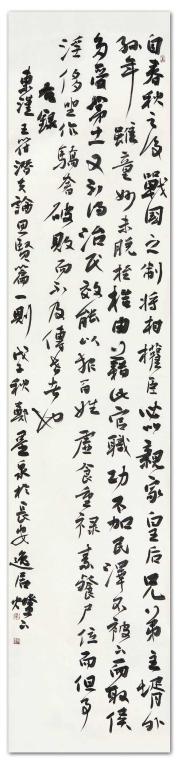 自春秋之后战国之制将相权臣必以亲家皇后兄弟主婿外
孙年虽童妙未脱桎梏由以藉此官职功不加民泽不被下而取侯
多受茅土又不得治民效能以报百姓虚食重禄素餐尸位而但事
淫侈坐作骄奢破败而不及传世者也
右录
东汉王符潜夫论思贤篇一则 戊子秋郑墨泉于长安逸居灯下